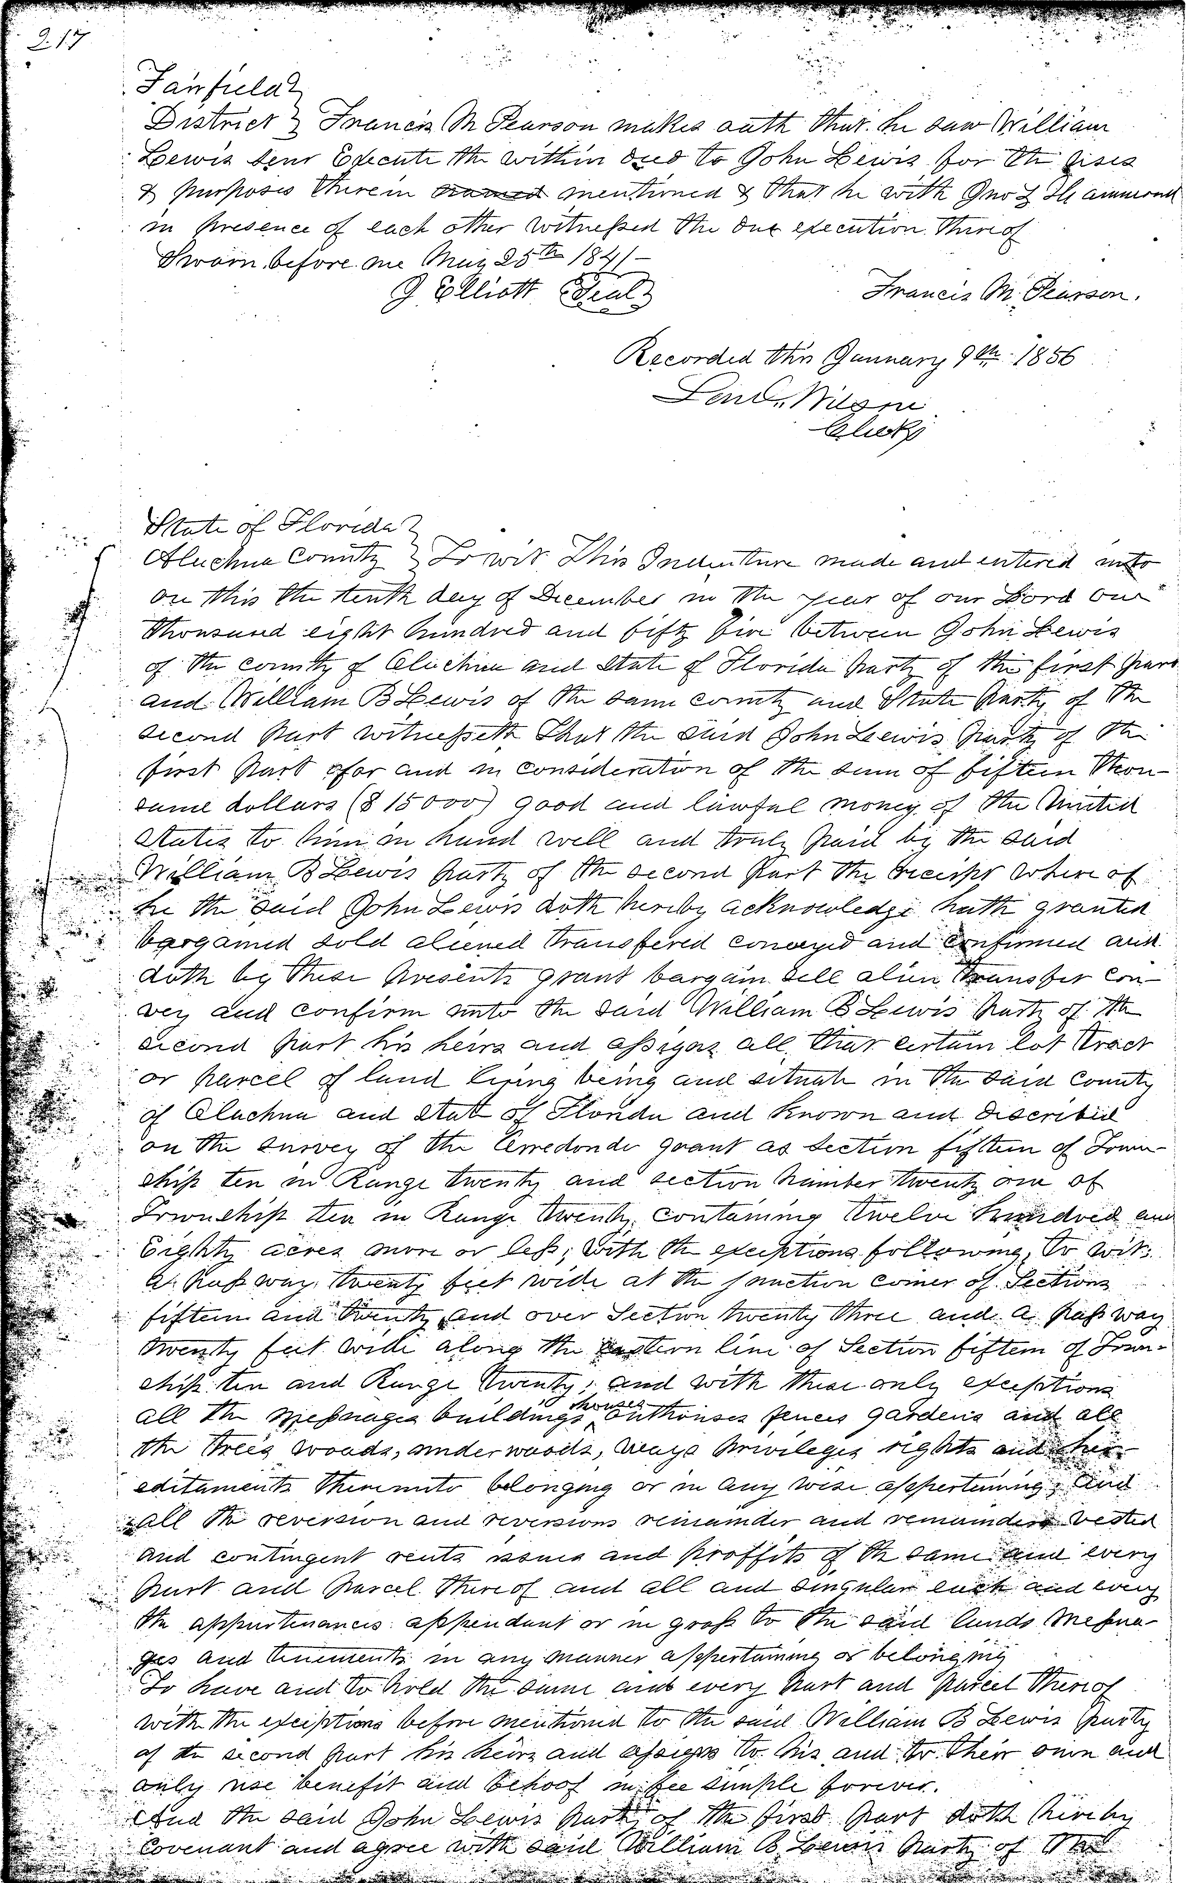 217
Fairfield
District } Francis M Pearson makes oath that he saw William
Lewis Senr Execute the within deed to John Lewis for the uses
& purposes therein named mentioned & that he with Jno Hammond
in presence of each other witnessed the due execution thereof
Sworn before me May 25th 1841-
J Elliott (Seal) Francis M. Pearson.
Recorded this January 9th 1856
Wilson
Clerk
State of Florida
Alachua County } To wit This Indenture made and entered into
on this the tenth day of December in the year of our Lord one
thousand eight hundred and fifty five between John Lewis
of the county of Alachua and State of Florida Party of the first part
and William B Lewis of the same county and State Party of the
second Part witnesseth That the said John Lewis Party of the
first Part for and in consideration of the sum of fifteen thou-
sand dollars ($15000) good and lawful money of the United
States to him in hand well and truly Paid by the said
William B Lewis Party of the second Part the receipt where of
he the said John Lewis doth hereby acknowledge hath granted
bargained sold aliened transfered conveyed and confirmed and
doth by these Presents grant bargain sell alien transfer con-
vey and confirm unto the said William B Lewis Party of the
second Part his heirs and assigns all that certain lot tract
or Parcel of land lying being and situate in the said county
of Alachua and state of Florida and known and discribed
on the survey of the Arredondo grant as section fifteen of Town-
ship ten in Range twenty and section number twenty one of
Township ten in Range twenty, containing twelve hundred and
Eighty acres more or less; with the exceptions following, to wit:
a Pass way twenty feet wide at the junction corner of Sections
fifteen and twenty and over Section twenty three and a Pass way
twenty feet wide along the eastern line of Section fifteen of Town-
ship ten and Range twenty; and with these only exceptions
all the messuages buildings houses outhouses fences gardens and all
the trees woods, underwoods, ways Privileges rights and her-
editaments thereunto belonging or in any wise appertaining, and
all the reversion and reversions remainder and remainders vested
and contingent rents issues and proffits of the same and every
Part and Parcel thereof and all and singular each and every
the appurtenances appendant or in gross to the said lands messua-
ges and tenements in any manner appertaining or belonging
To have and to hold the same and every Part and Parcel thereof
with the exceptions before mentioned to the said William B Lewis Party
of the second Part his heirs and assigns to his and to their own and
only use benefit and behoof in fee simple forever.
And the said John Lewis Party of the first Part doth hereby
covenant and agree with said William B. Lewis Party of the